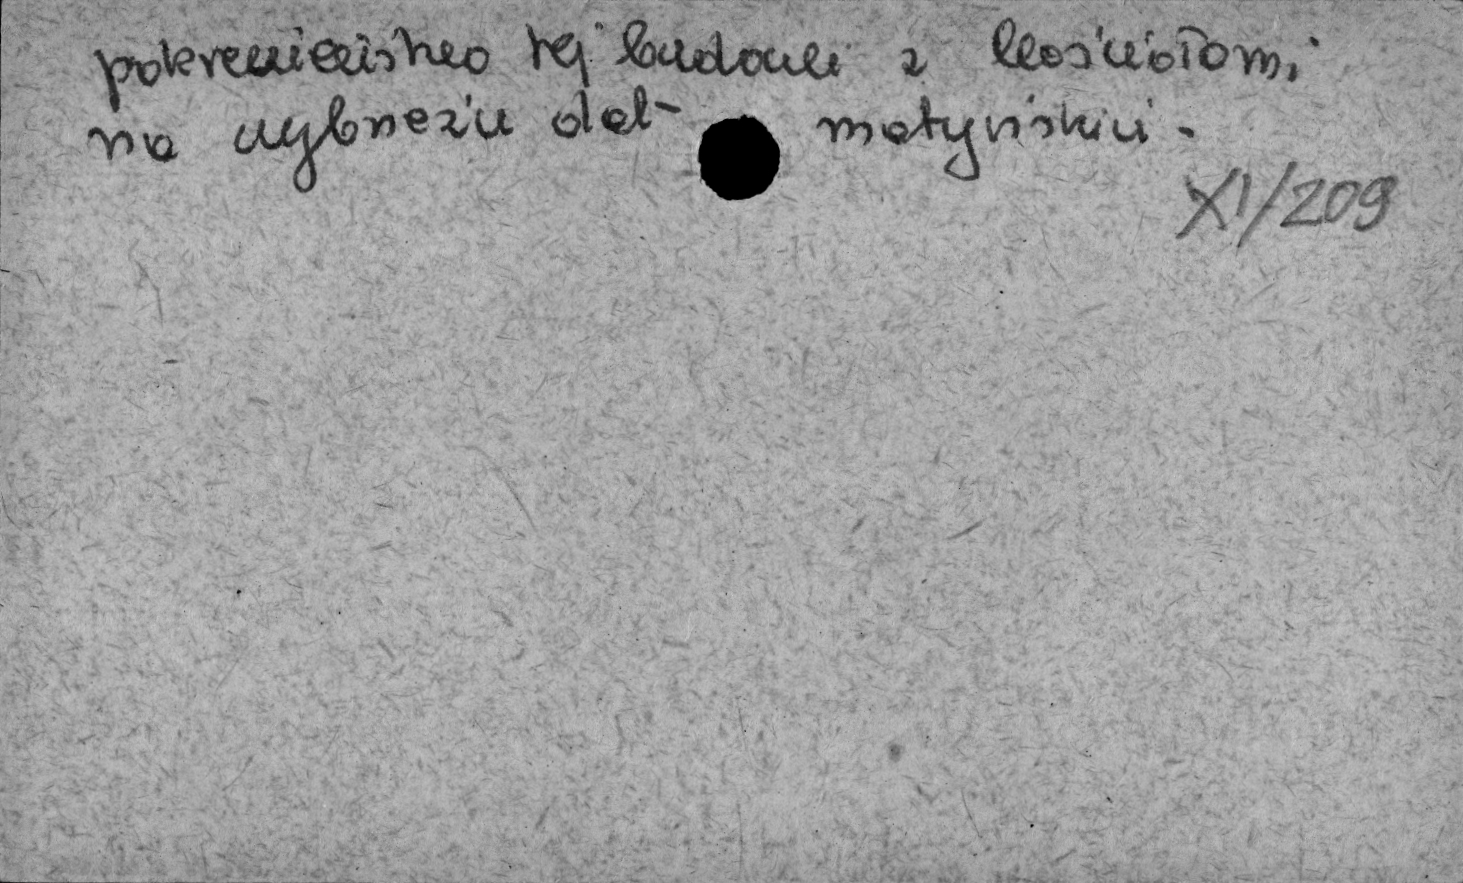 pokrewieństwo tej budowli z kościołami
na wybrzeżu dal- matyńskim.
XI/209